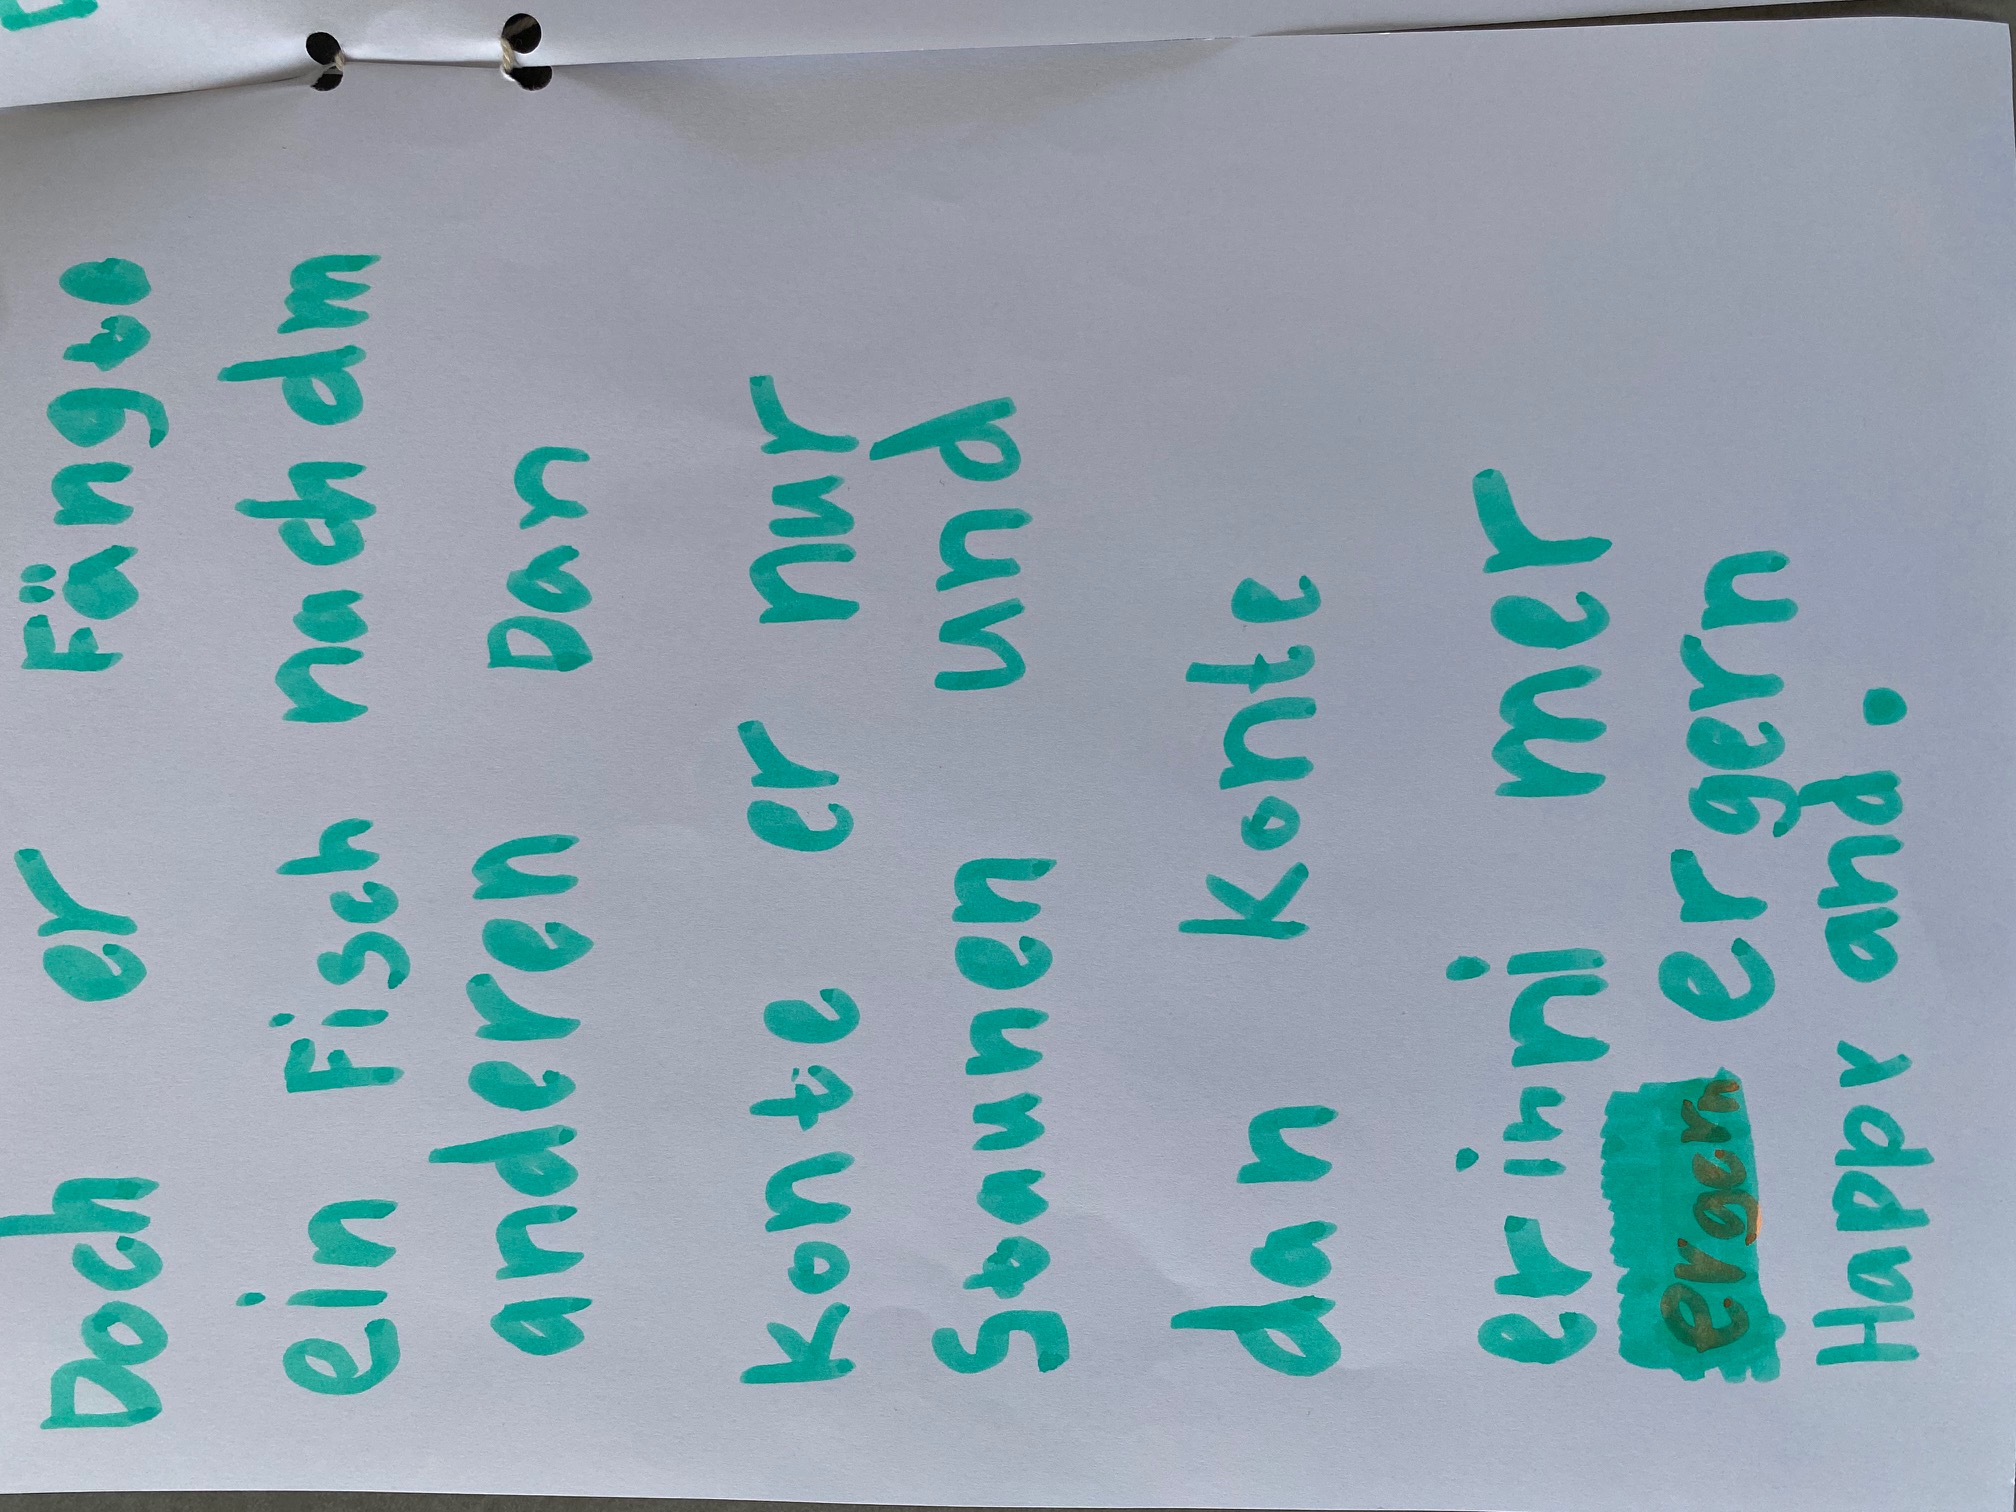 Doch er Fängte
ein Fisch nach dm
anderen Dan
konte er nur
Staunen und
dan konte
er in ni mer
ergern ergern
Happy and.